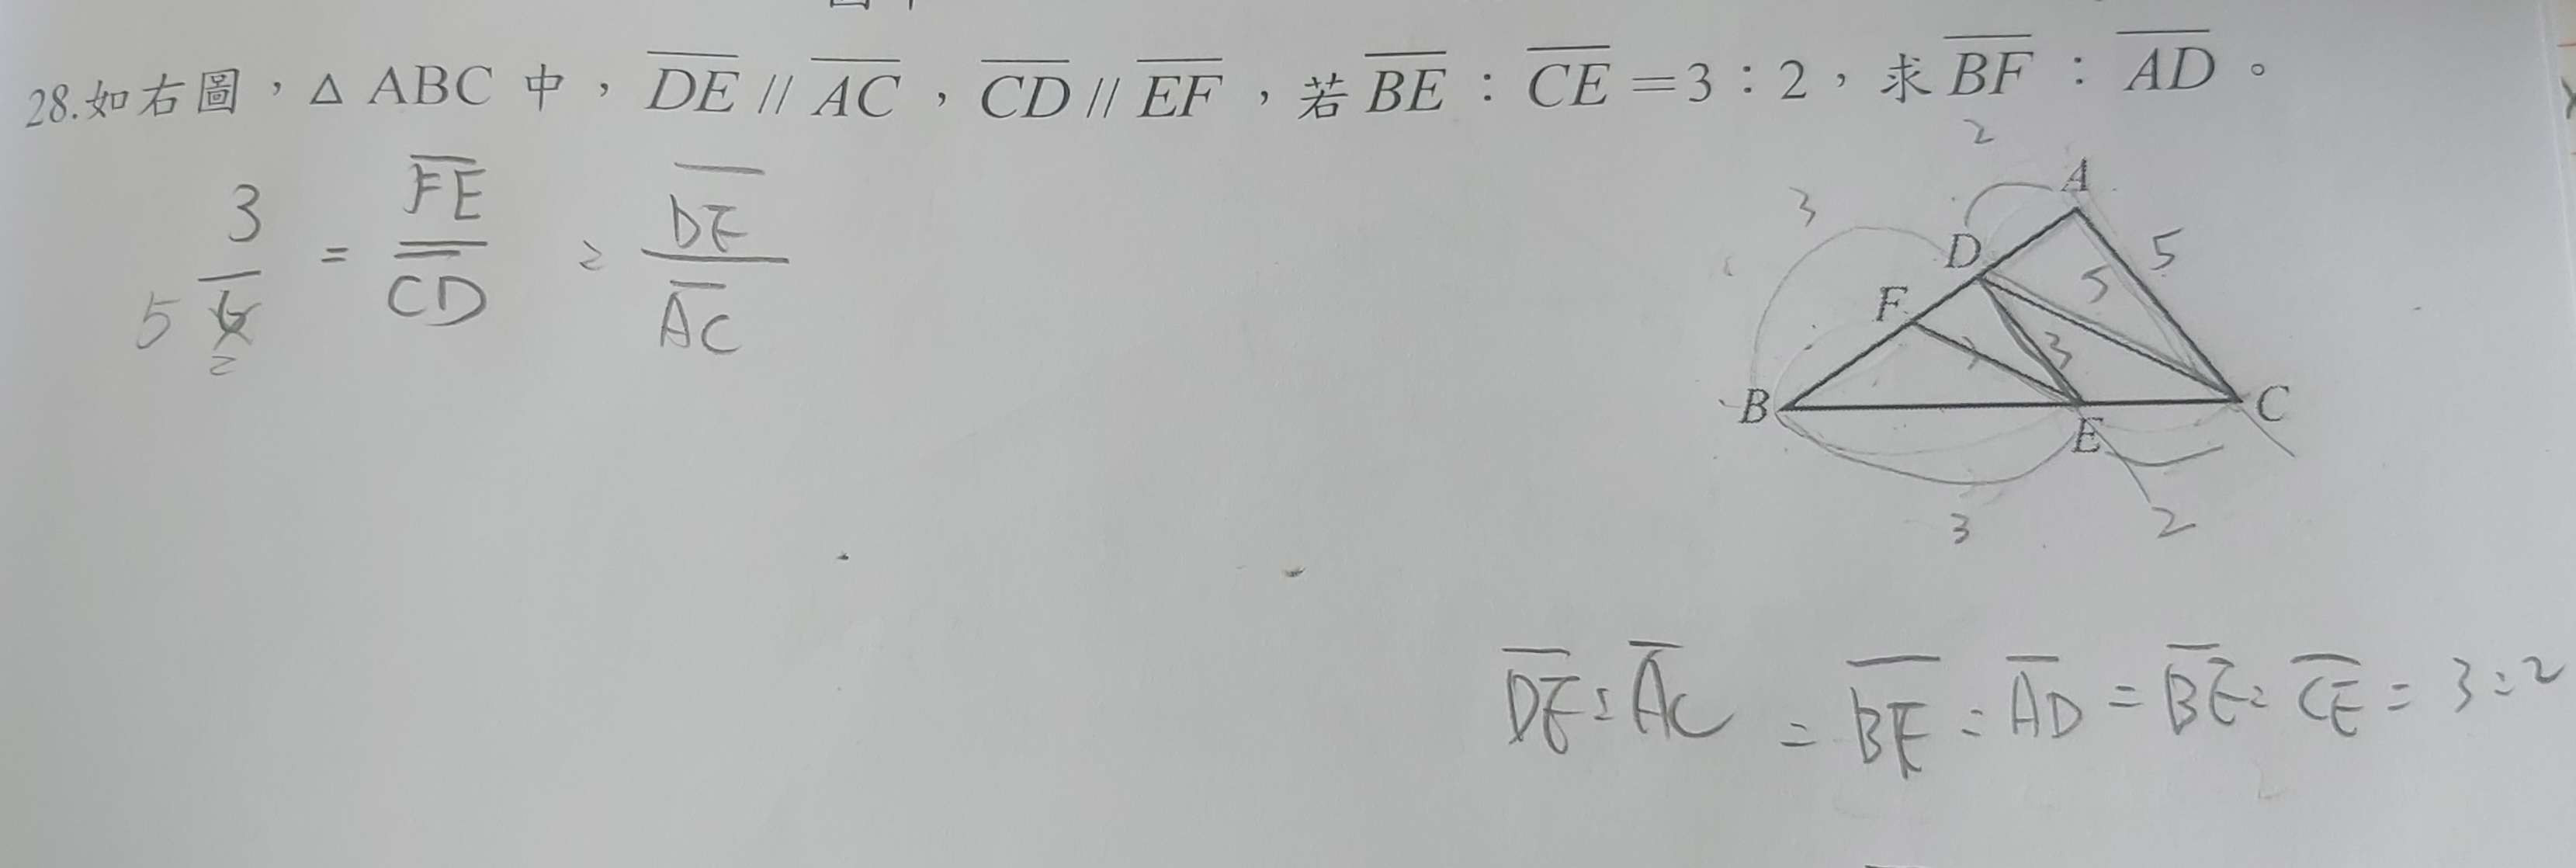 28.如右圖，△ ABC 中，DE // AC，CD // EF，若 BE：CE＝3：2，求 BF：AD。
3 = FE = DE
5 CD AC
2
2
3
A
5
D
5
F
3
B
E
C
3
2
DE : AC = BF : AD = BE : CE = 3 : 2